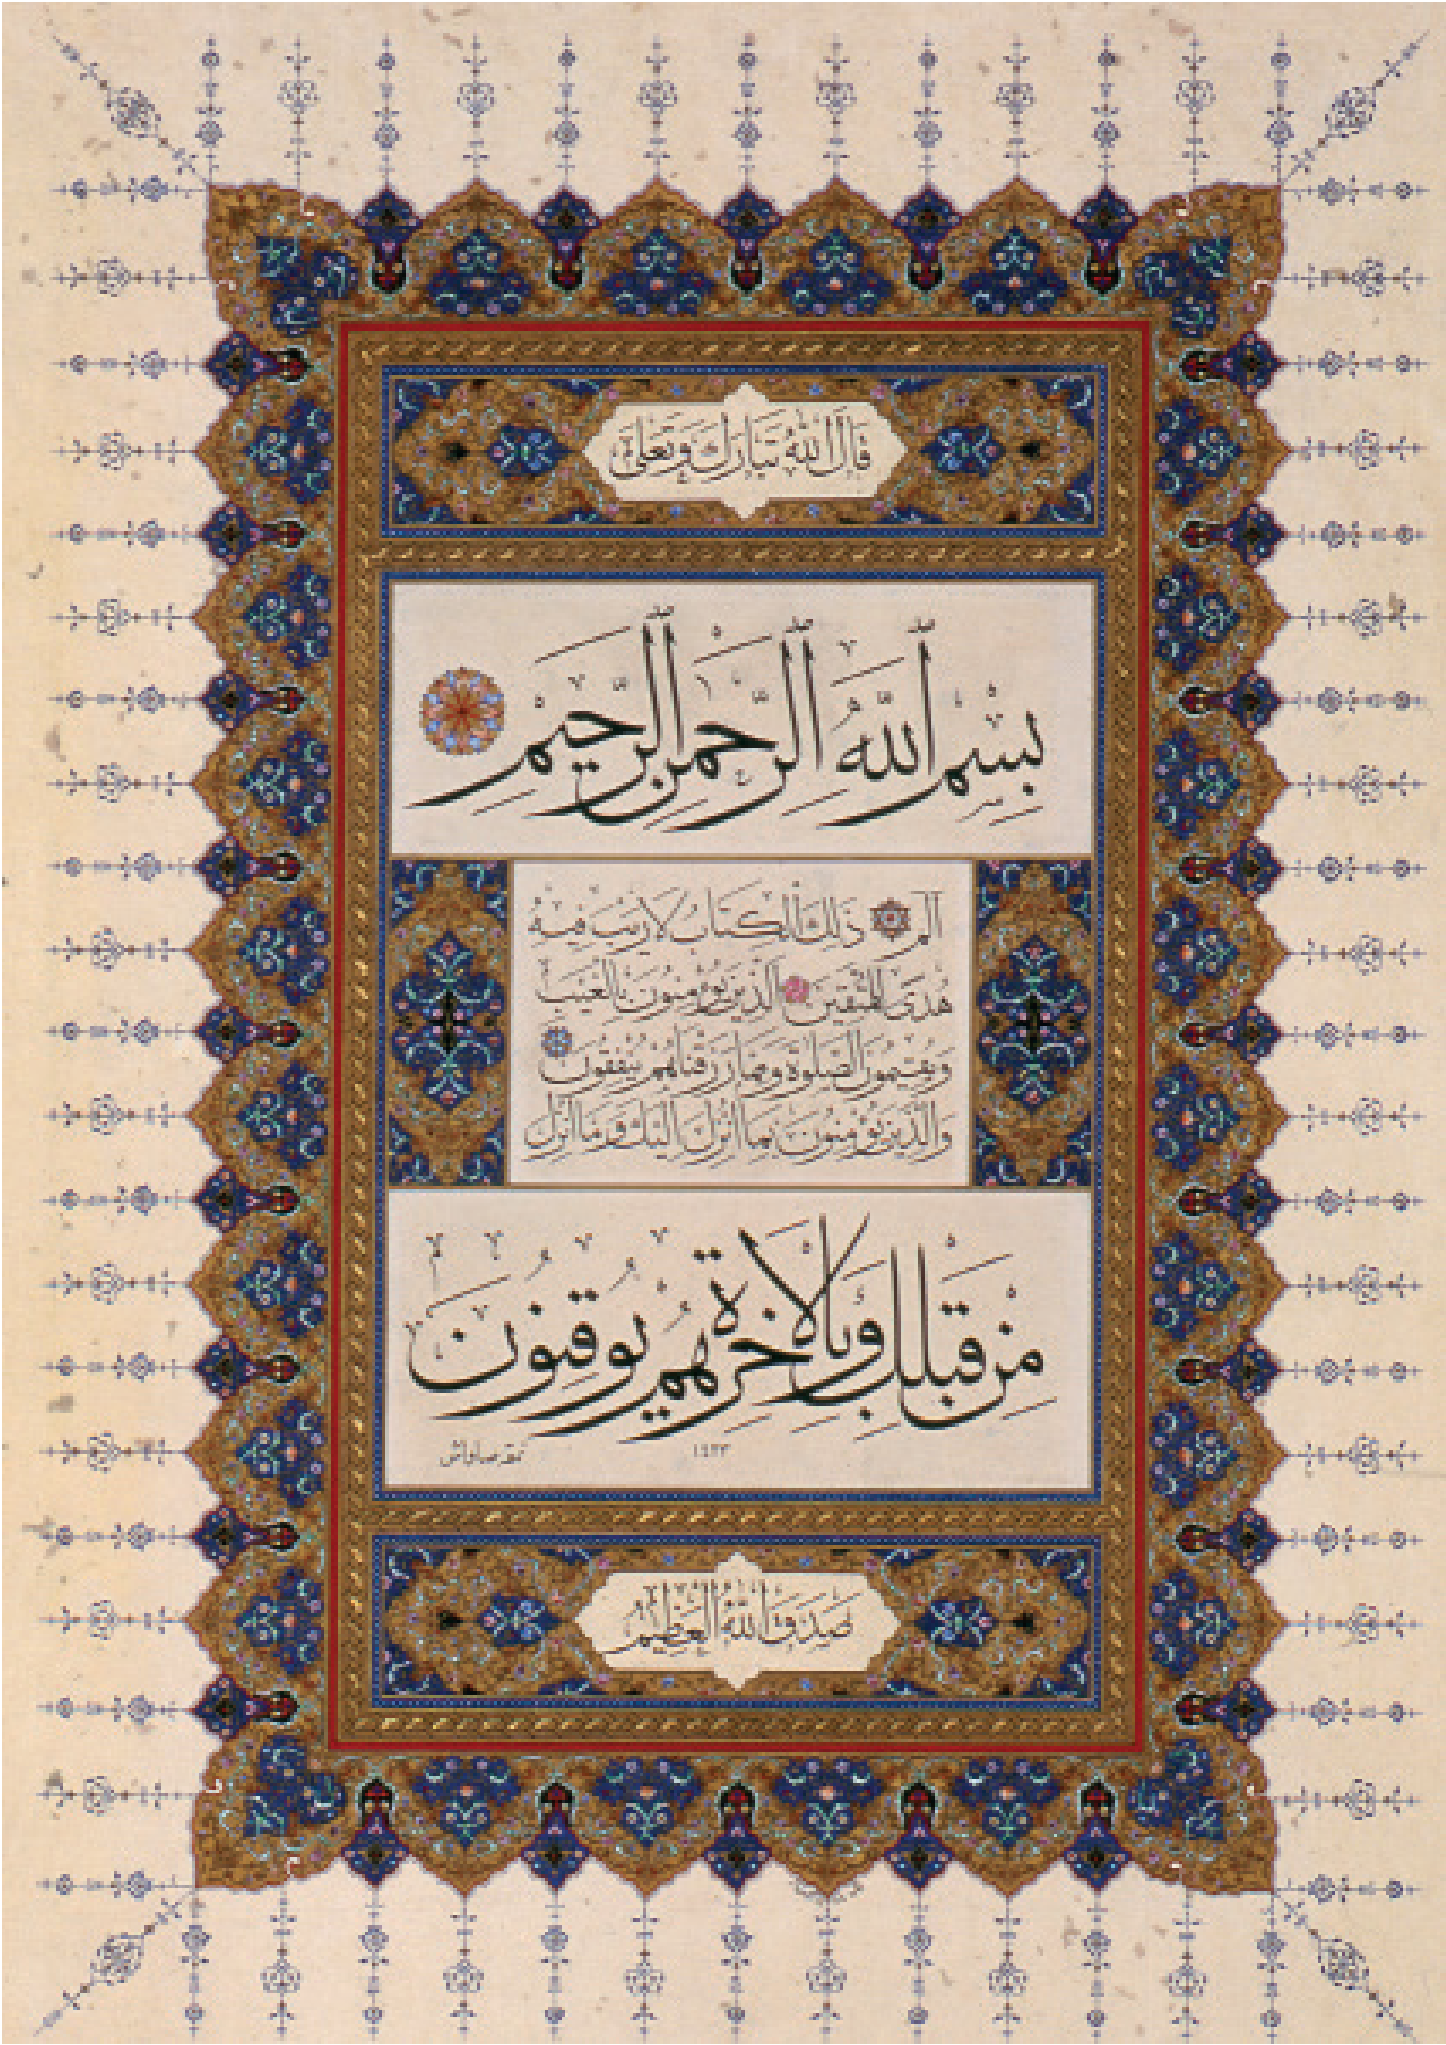 قَالَ اللهُ تَبَارَكَ وَتَعَالَى
بِسْمِ ٱللَّهِ ٱلرَّحْمٰنِ ٱلرَّحِيمِ
الٓمٓ ذٰلِكَ الْكِتَابُ لَا رَيْبَ فِيهِ
هُدًى لِلْمُتَّقِينَ الَّذِينَ يُؤْمِنُونَ بِالْغَيْبِ
وَيُقِيمُونَ الصَّلٰوةَ وَمِمَّا رَزَقْنَاهُمْ يُنْفِقُونَ
وَالَّذِينَ يُؤْمِنُونَ بِمَا أُنْزِلَ إِلَيْكَ وَمَا أُنْزِلَ
مِنْ قَبْلِكَ وَبِالْاٰخِرَةِ هُمْ يُوقِنُونَ
١٤٢٣
صَدَقَ اللهُ الْعَظِيمُ